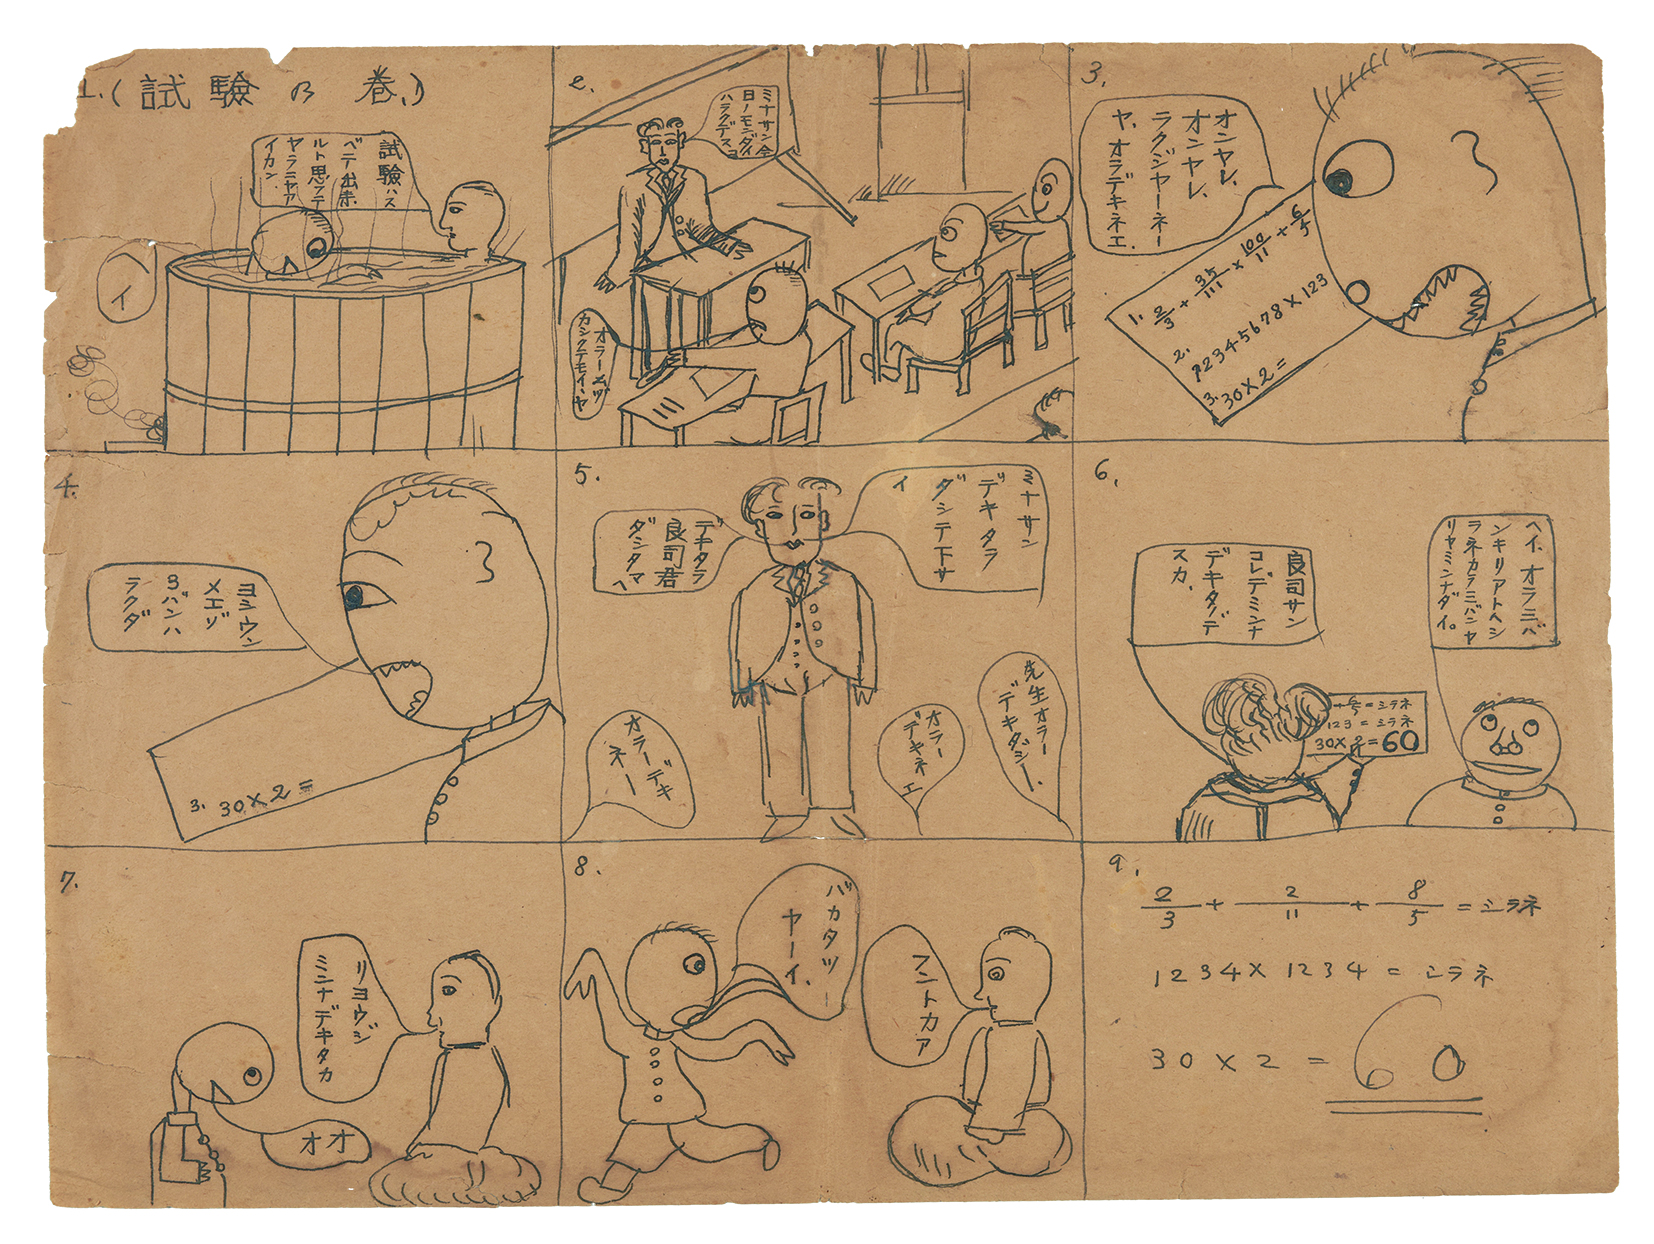 1.(試驗の巻.)
試驗ハス
ベテ出来
ルト思ッテ
ヤラニャア
イカン
ヘイ
2.
ミナサン今
日ノモンダイ
ハラクデスヨ
カシクテモイ、ヤ
3.
オンヤレ、
オンヤレ、
ラクジヤーネー
ヤ、オラデキネエ.
1. 2/3 + 35/111 × 100/11 + 6/5
2.
12345678×123
3.
30×2=
4.
ヨシウン
メエゾ
3バンハ
ラクダ
3. 30×2=
5.
ミナサン
デキタラ
ダシテ下サ
イ
デキタラ
良司君
ダシタマ
ヘ
オラーデキ
ネー
オラー
デキネ
エ
先生オラー
デキダシー、
6.
良司サン
コレデミンナ
デキタノデ
スカ、
ヘイ、オラ三バ
ンキリアトヘシ
ラネカラ三バンヤ
リヤミンナダイ。
+6/5=シラネ
123=シラネ
30×2=60
7.
リヨウジ
ミンナデキタカ
オオ
8.
バカタツ
ヤーイ、
フントカア
9.
2/3 + 2/11 + 8/5 = シラネ
1234×1234=シラネ
30×2=60